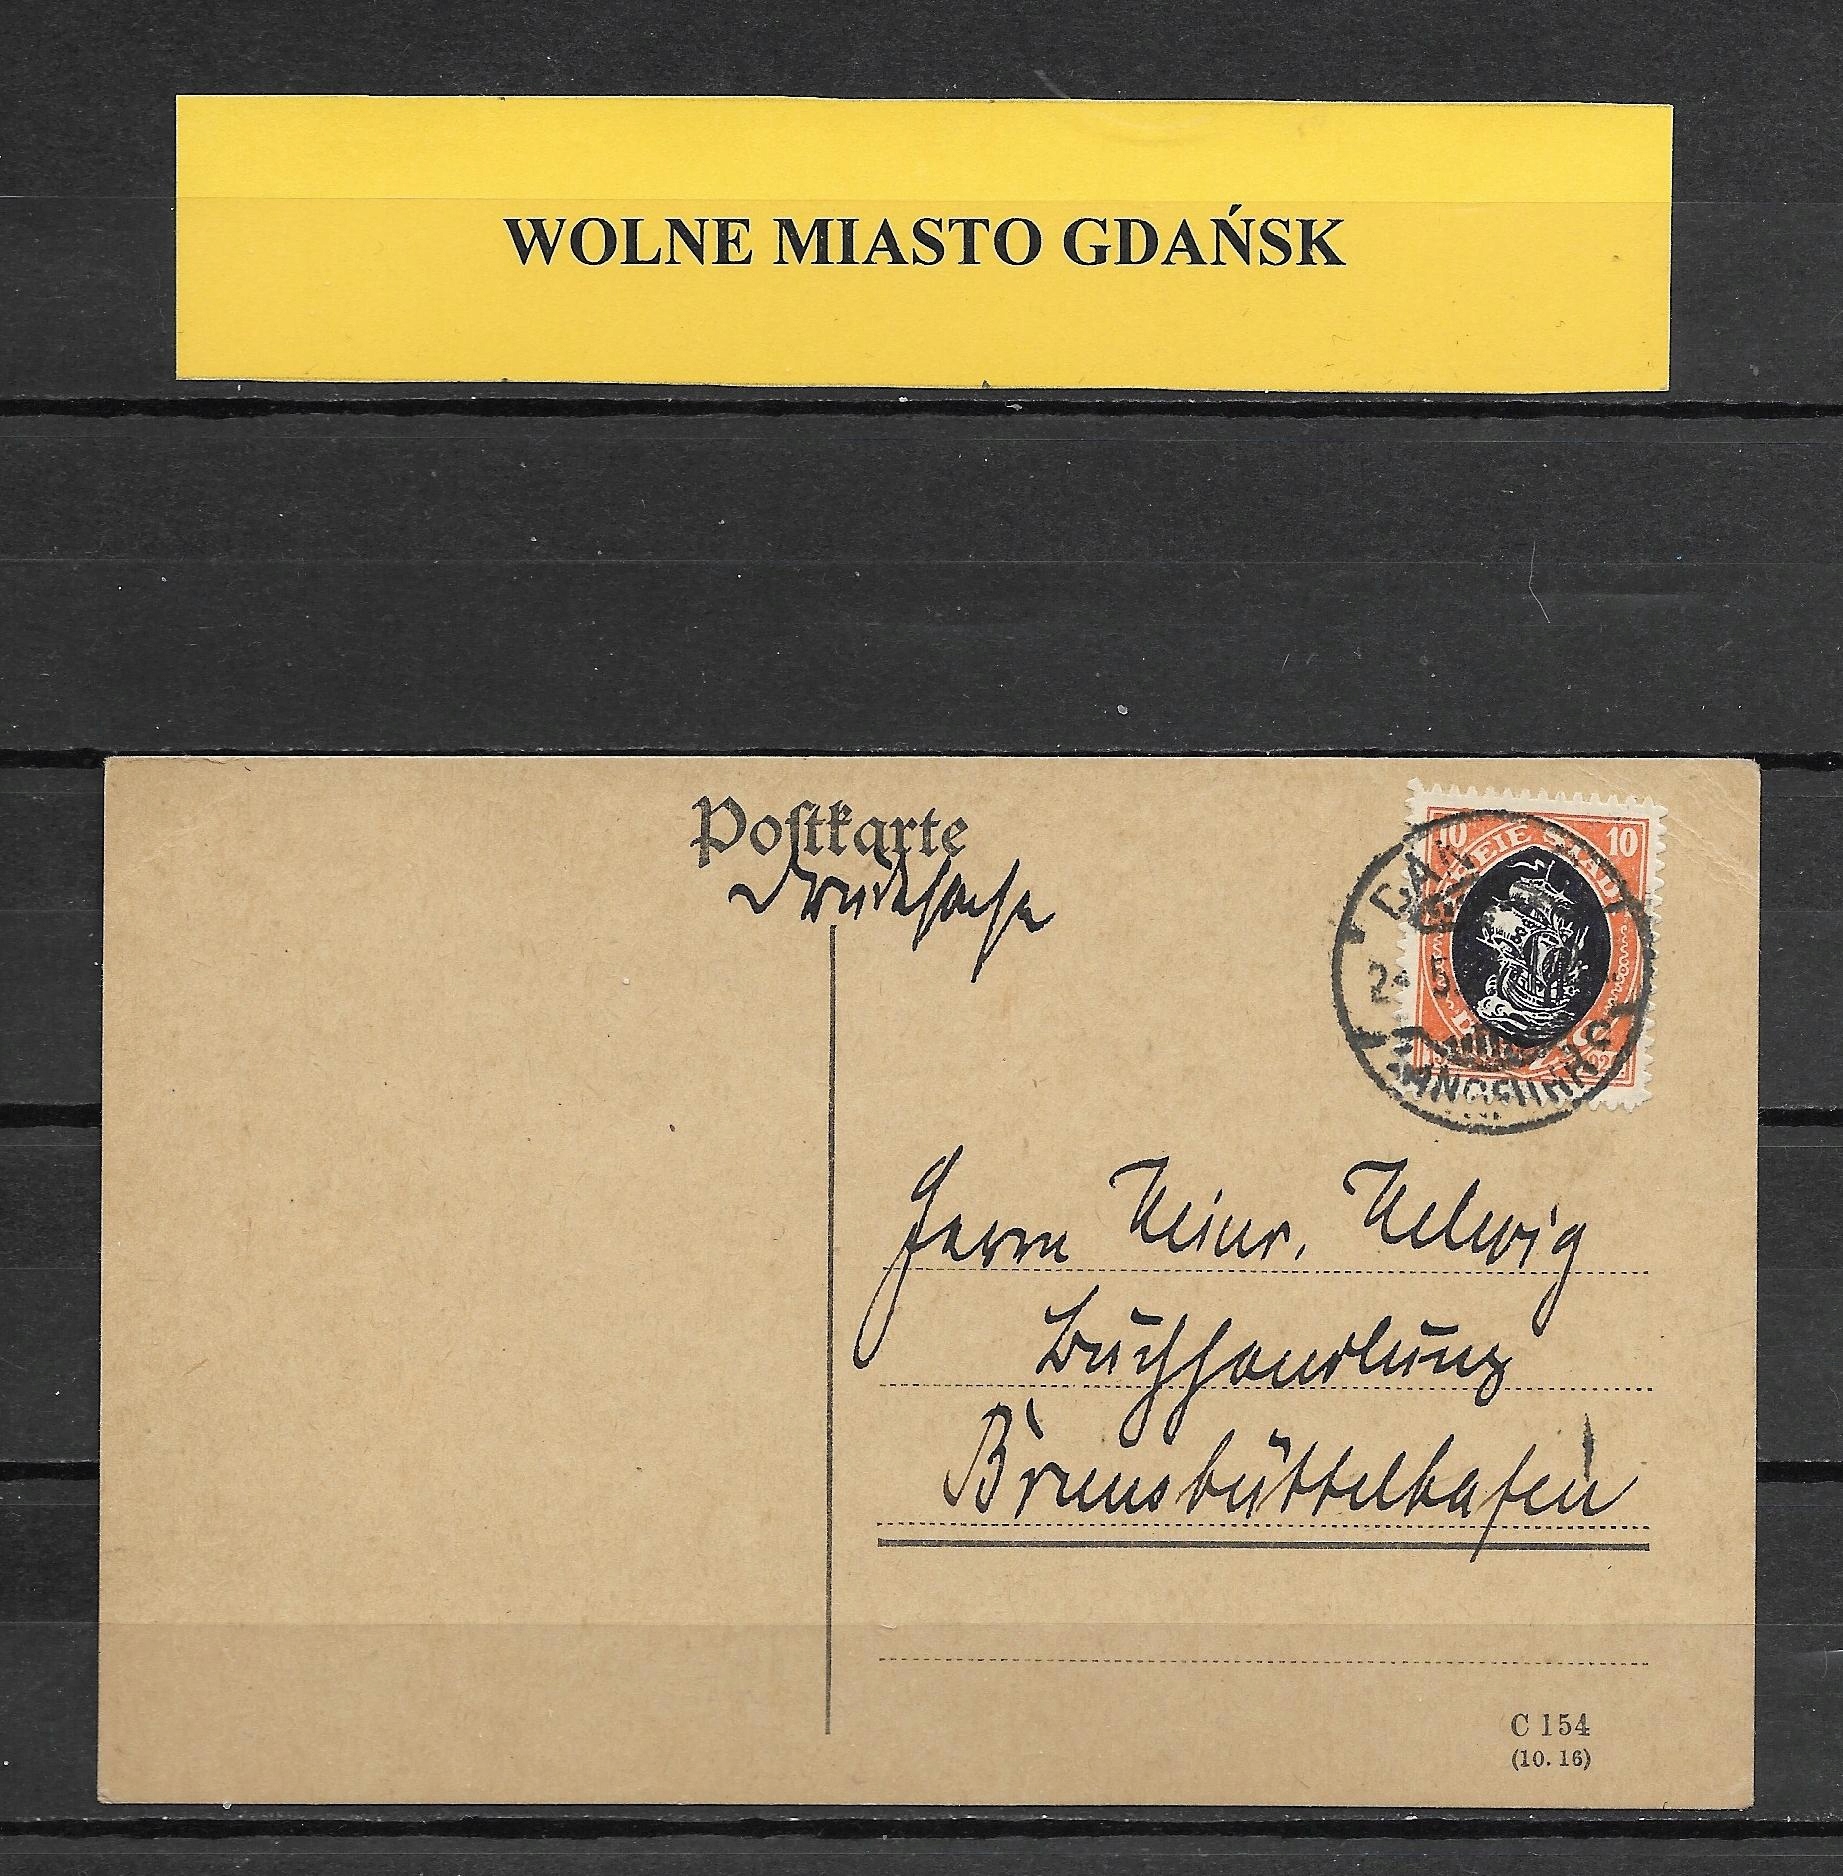 WOLNE MIASTO GDAŃSK
Postkarte
Drucksache
10 10
FREIE STADT
DAN
LANGFUHR
Herrn Heinr. Helwig
Buchhandlung
Brunsbüttelhafen
C 154
(10. 16)